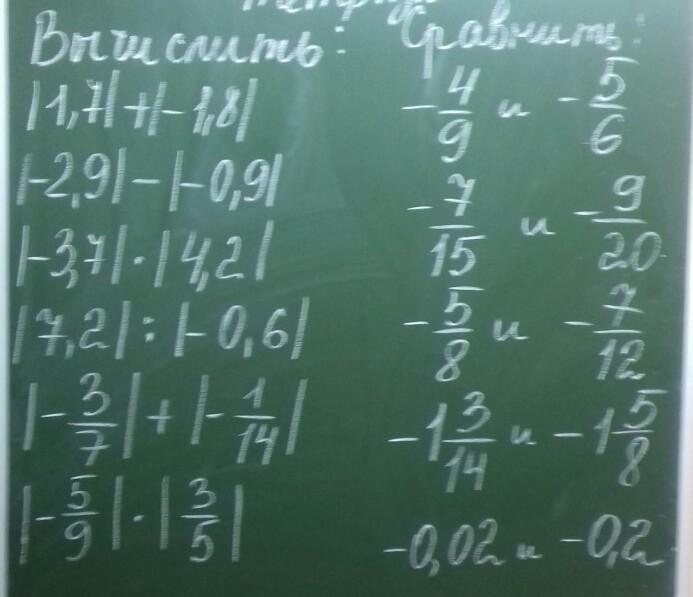 Вычислить:
|1,7|+|-1,8|
|-2,9|-|-0,9|
|-3,7|·|4,2|
|7,2|:|-0,6|
|-3/7|+|-1/14|
|-5/9|·|3/5|
Сравнить:
-4/9 и -5/6
-7/15 и -9/20
-5/8 и -7/12
-1 3/14 и -1 5/8
-0,02 и -0,2